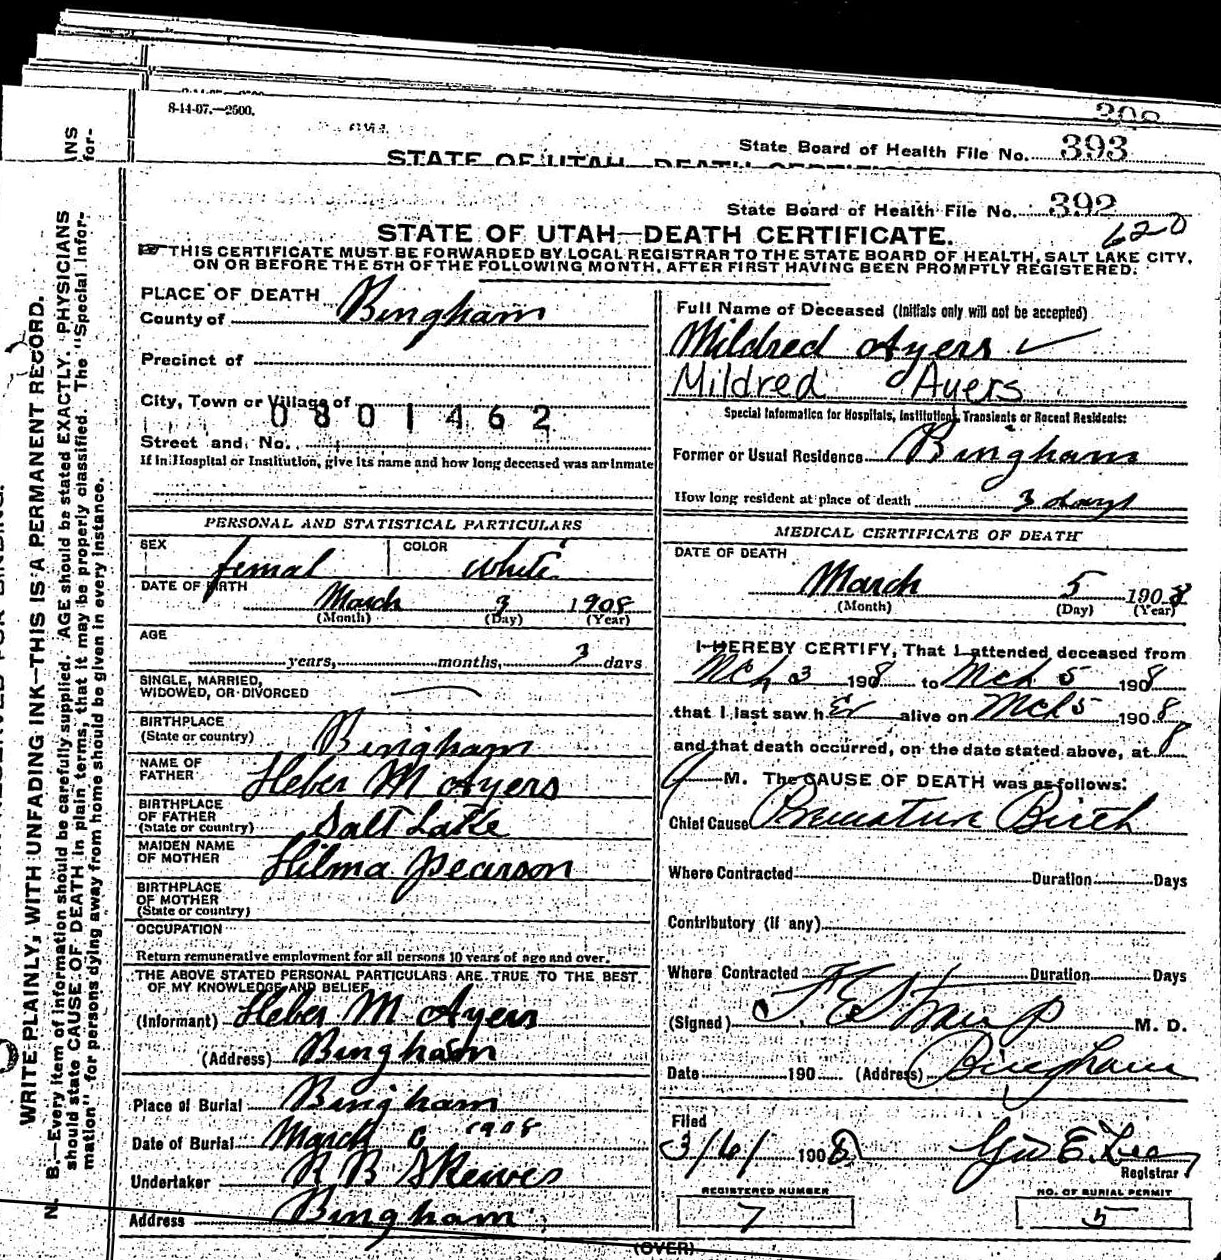 398
8-14-07.—2500.
State Board of Health File No. 393
STATE OF UTAH—DEATH CERTIFICATE
State Board of Health File No. 392
620
STATE OF UTAH—DEATH CERTIFICATE.
THIS CERTIFICATE MUST BE FORWARDED BY LOCAL REGISTRAR TO THE STATE BOARD OF HEALTH, SALT LAKE CITY,
ON OR BEFORE THE 5TH OF THE FOLLOWING MONTH, AFTER FIRST HAVING BEEN PROMPTLY REGISTERED.
PLACE OF DEATH
County of Bingham
Precinct of
City, Town or Village of
0801462
Street and No.
If in Hospital or Institution, give its name and how long deceased was an inmate
PERSONAL AND STATISTICAL PARTICULARS
SEX femal COLOR white
DATE OF BIRTH
March 3 1908
(Month) (Day) (Year)
AGE
years, months, 3 days
SINGLE, MARRIED,
WIDOWED, OR DIVORCED
BIRTHPLACE
(State or country) Bingham
NAME OF
FATHER Heber M Ayers
BIRTHPLACE
OF FATHER
(State or country) Salt Lake
MAIDEN NAME
OF MOTHER Hilma Pearson
BIRTHPLACE
OF MOTHER
(State or country)
OCCUPATION
Return remunerative employment for all persons 10 years of age and over.
THE ABOVE STATED PERSONAL PARTICULARS ARE TRUE TO THE BEST
OF MY KNOWLEDGE AND BELIEF
(Informant) Heber M Ayers
(Address) Bingham
Place of Burial Bingham
Date of Burial March 6 1908
Undertaker R B Skewes
Address Bingham
Full Name of Deceased (Initials only will not be accepted)
Mildred Ayers ✓
Mildred Ayers
Special Information for Hospitals, Institutions, Transients or Recent Residents:
Former or Usual Residence Bingham
How long resident at place of death 3 days
MEDICAL CERTIFICATE OF DEATH
DATE OF DEATH
March 5 1908
(Month) (Day) (Year)
I HEREBY CERTIFY, That I attended deceased from
Mch 3 1908 to Mch 5 1908
that I last saw h er alive on Mch 5 1908
and that death occurred, on the date stated above, at 8
M. The CAUSE OF DEATH was as follows:
Chief Cause Premature Birth
Where Contracted Duration Days
Contributory (if any)
Where Contracted Duration Days
(Signed) F E Straup M. D.
Date 190 (Address) Bingham
Filed
3/6/ 1908 Geo E. Lee
Registrar
REGISTERED NUMBER
7
NO. OF BURIAL PERMIT
5
(OVER)
WRITE PLAINLY, WITH UNFADING INK—THIS IS A PERMANENT RECORD.
N. B.—Every item of information should be carefully supplied. AGE should be stated EXACTLY. PHYSICIANS
should state CAUSE OF DEATH in plain terms, that it may be properly classified. The "Special Infor-
mation" for persons dying away from home should be given in every instance.